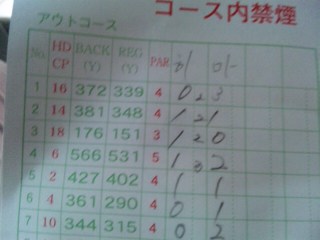 コース内禁煙
アウトコース
No. HD CP BACK (Y) REG (Y) PAR
1 16 372 339 4 0 2 3
2 14 381 348 4 1 2 1
3 18 176 151 3 1 2 0
4 6 566 531 5 1 3 2
5 2 427 402 4 1 1
6 4 361 290 4 0 1
7 10 344 315 4 0 2